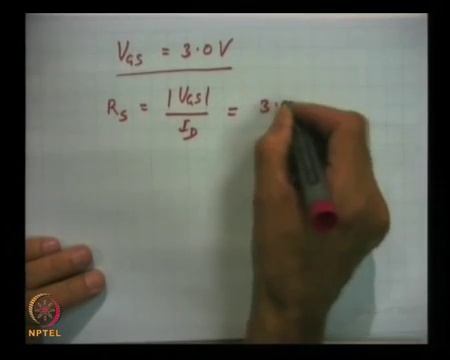 V_GS = 3.0 V
R_S = |V_GS| / I_D = 3.
NPTEL